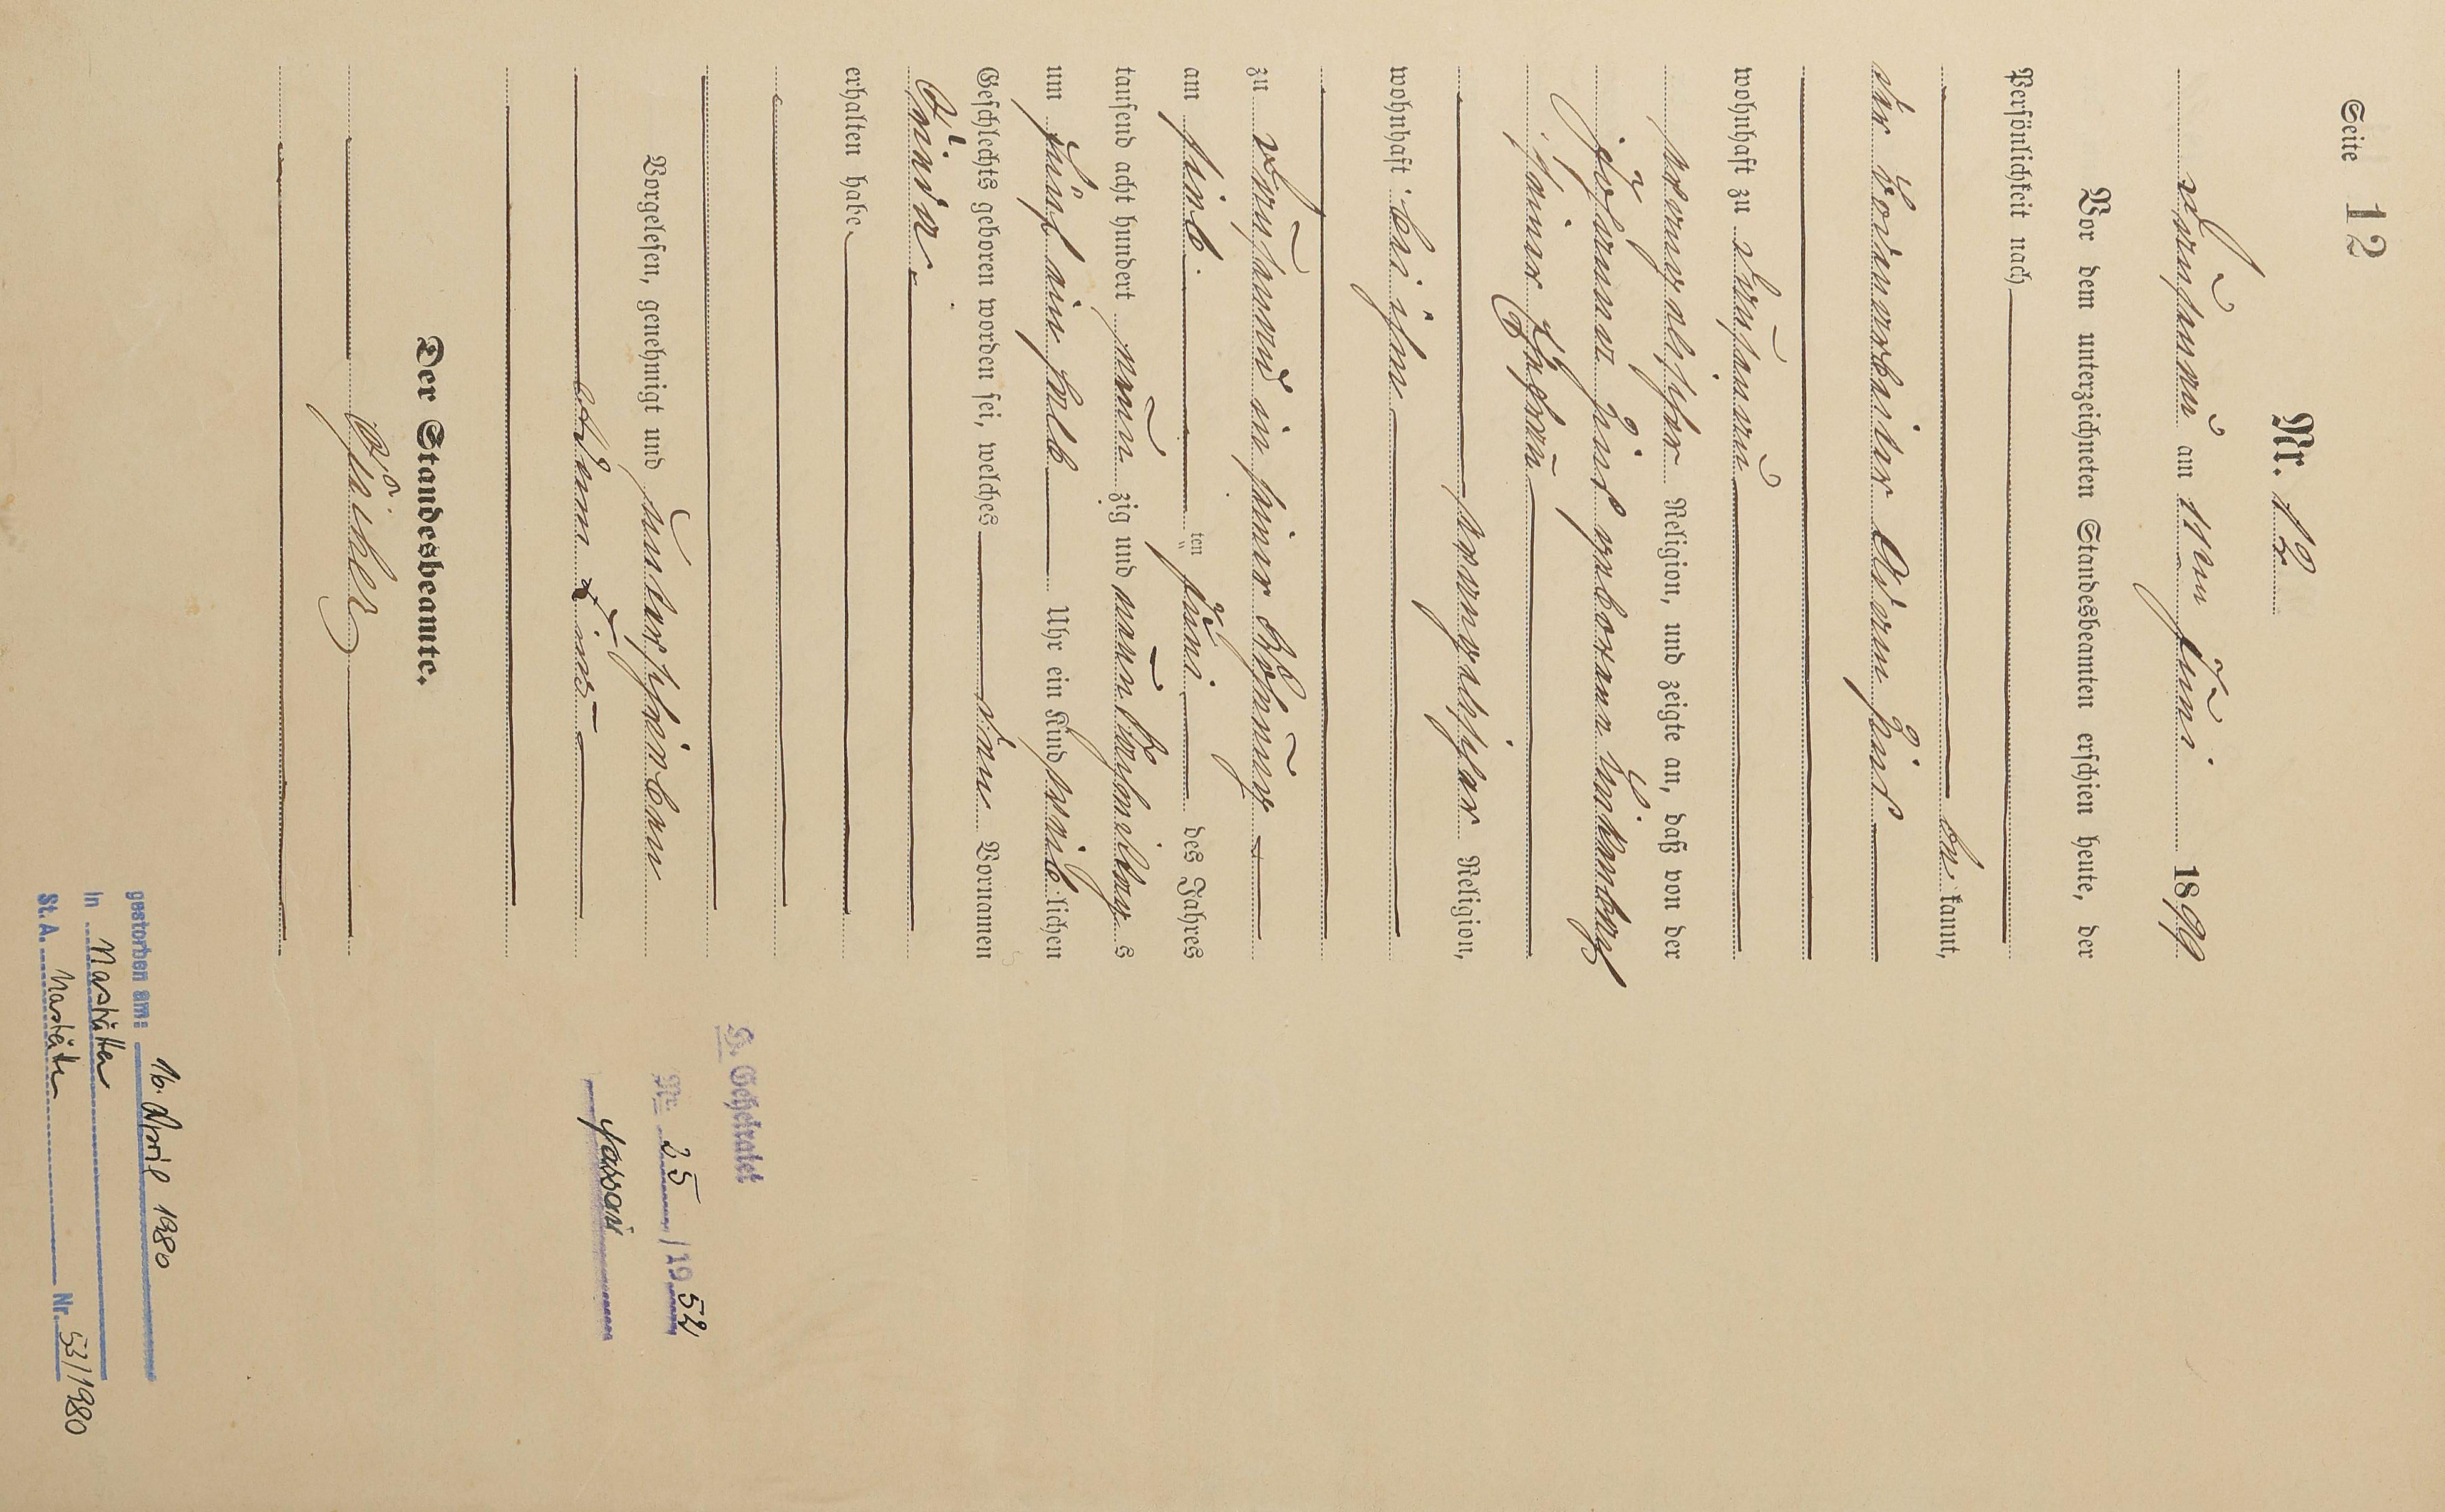 Seite 12
Nr. 12
Dausenau am 11ten Juni 1899
Vor dem unterzeichneten Standesbeamten erschien heute, der
Persönlichkeit nach
be kannt,
der Adam
wohnhaft zu Dausenau
evangelischer Religion, und zeigte an, daß von der
geborene
seiner Ehefrau
evangelischer Religion,
wohnhaft bei ihm
zu Dausenau in seiner Wohnung
am sieb ten Juni des Jahres
tausend acht hundert neun zig und neun Nachmittag s
um fünf ein halb Uhr ein Kind weib lichen
Geschlechts geboren worden sei, welches den Vornamen
erhalten habe.
Vorgelesen, genehmigt und unterschrieben
Adam
Der Standesbeamte.
G. Geheiratet
Nr. 25 / 1952
Nassau
gestorben am: 16. April 1980
in Nastätten
St. A. Nastätten Nr. 53/1980